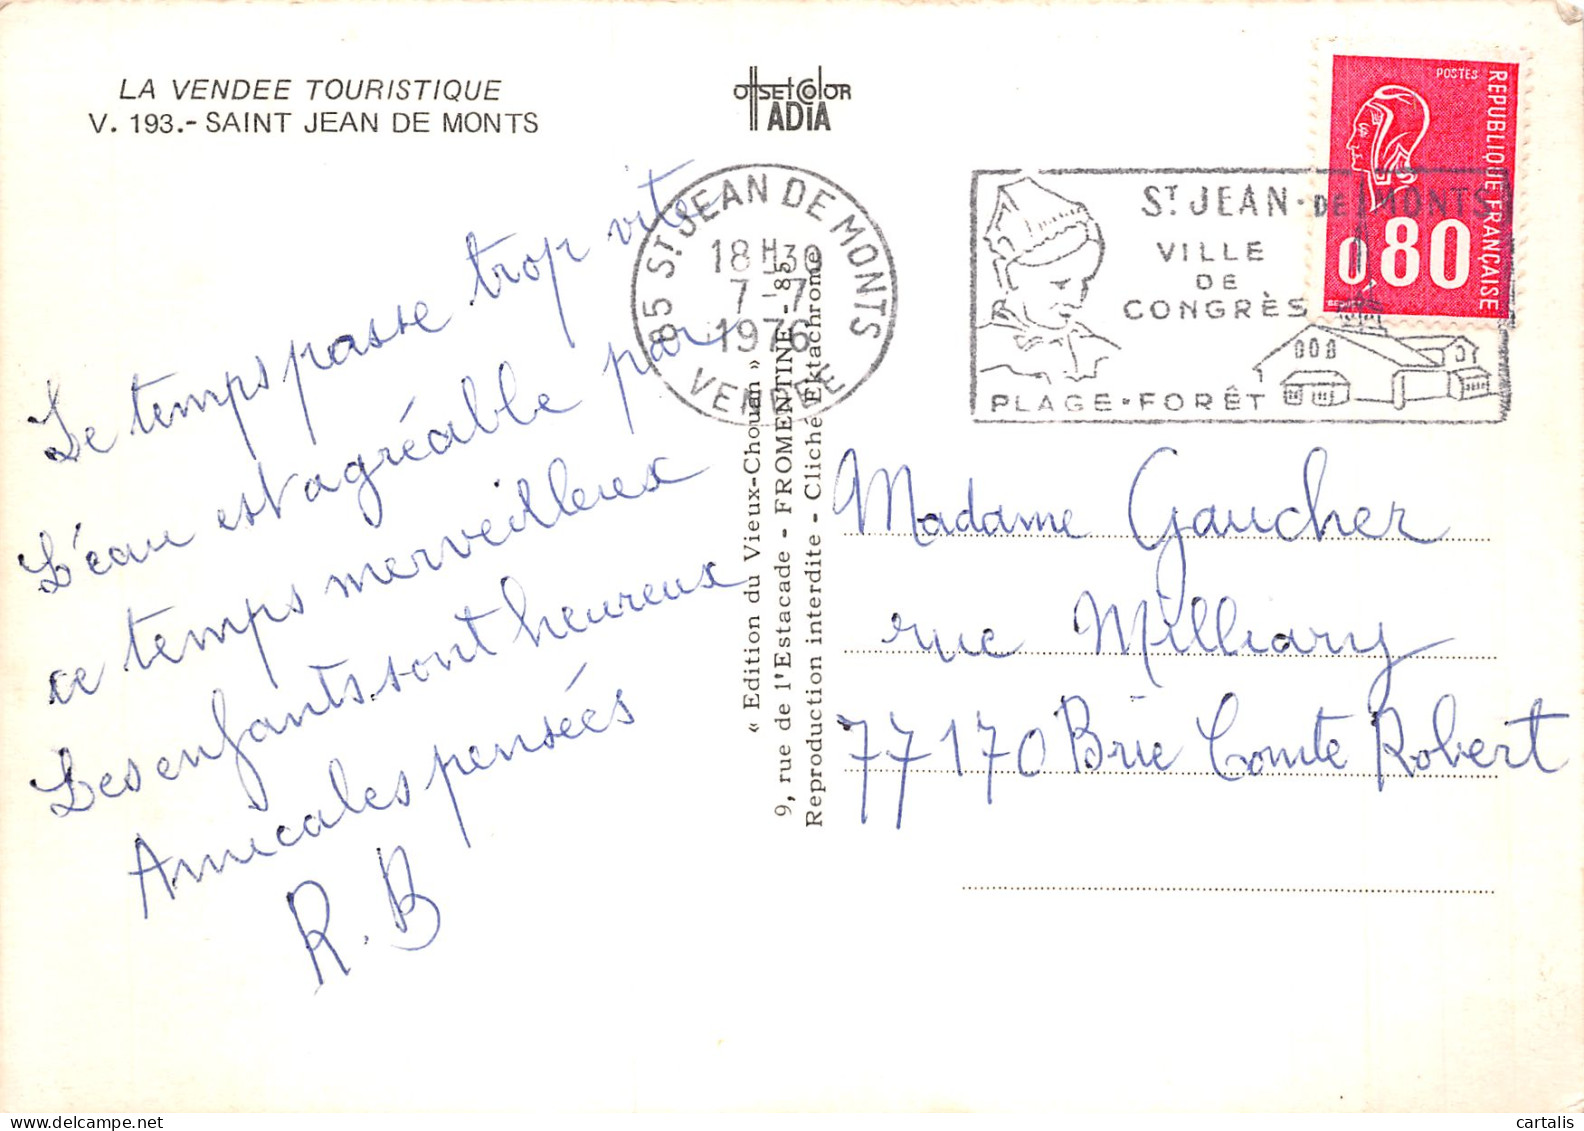 LA VENDEE TOURISTIQUE
V. 193.- SAINT JEAN DE MONTS
OffSEt COlOR
ADIA
POSTES
REPUBLIQUE FRANÇAISE
0,80
85 ST JEAN DE MONTS
18H30
7-7
1976
VENDEE
ST JEAN-DE MONTS
VILLE
DE
CONGRÈS
PLAGE-FORÊT
Le temps passe trop vite
L'eau est agréable par
ce temps merveilleux
Les enfants sont heureux
Amicales pensées
R.B
« Edition du Vieux-Chouan »
9, rue de l'Estacade - FROMENTINE - 85
Reproduction interdite - Cliché Ektachrome
Madame Gaucher
rue Milliary
77170 Brie Comte Robert
cartalis
Delcampe.net